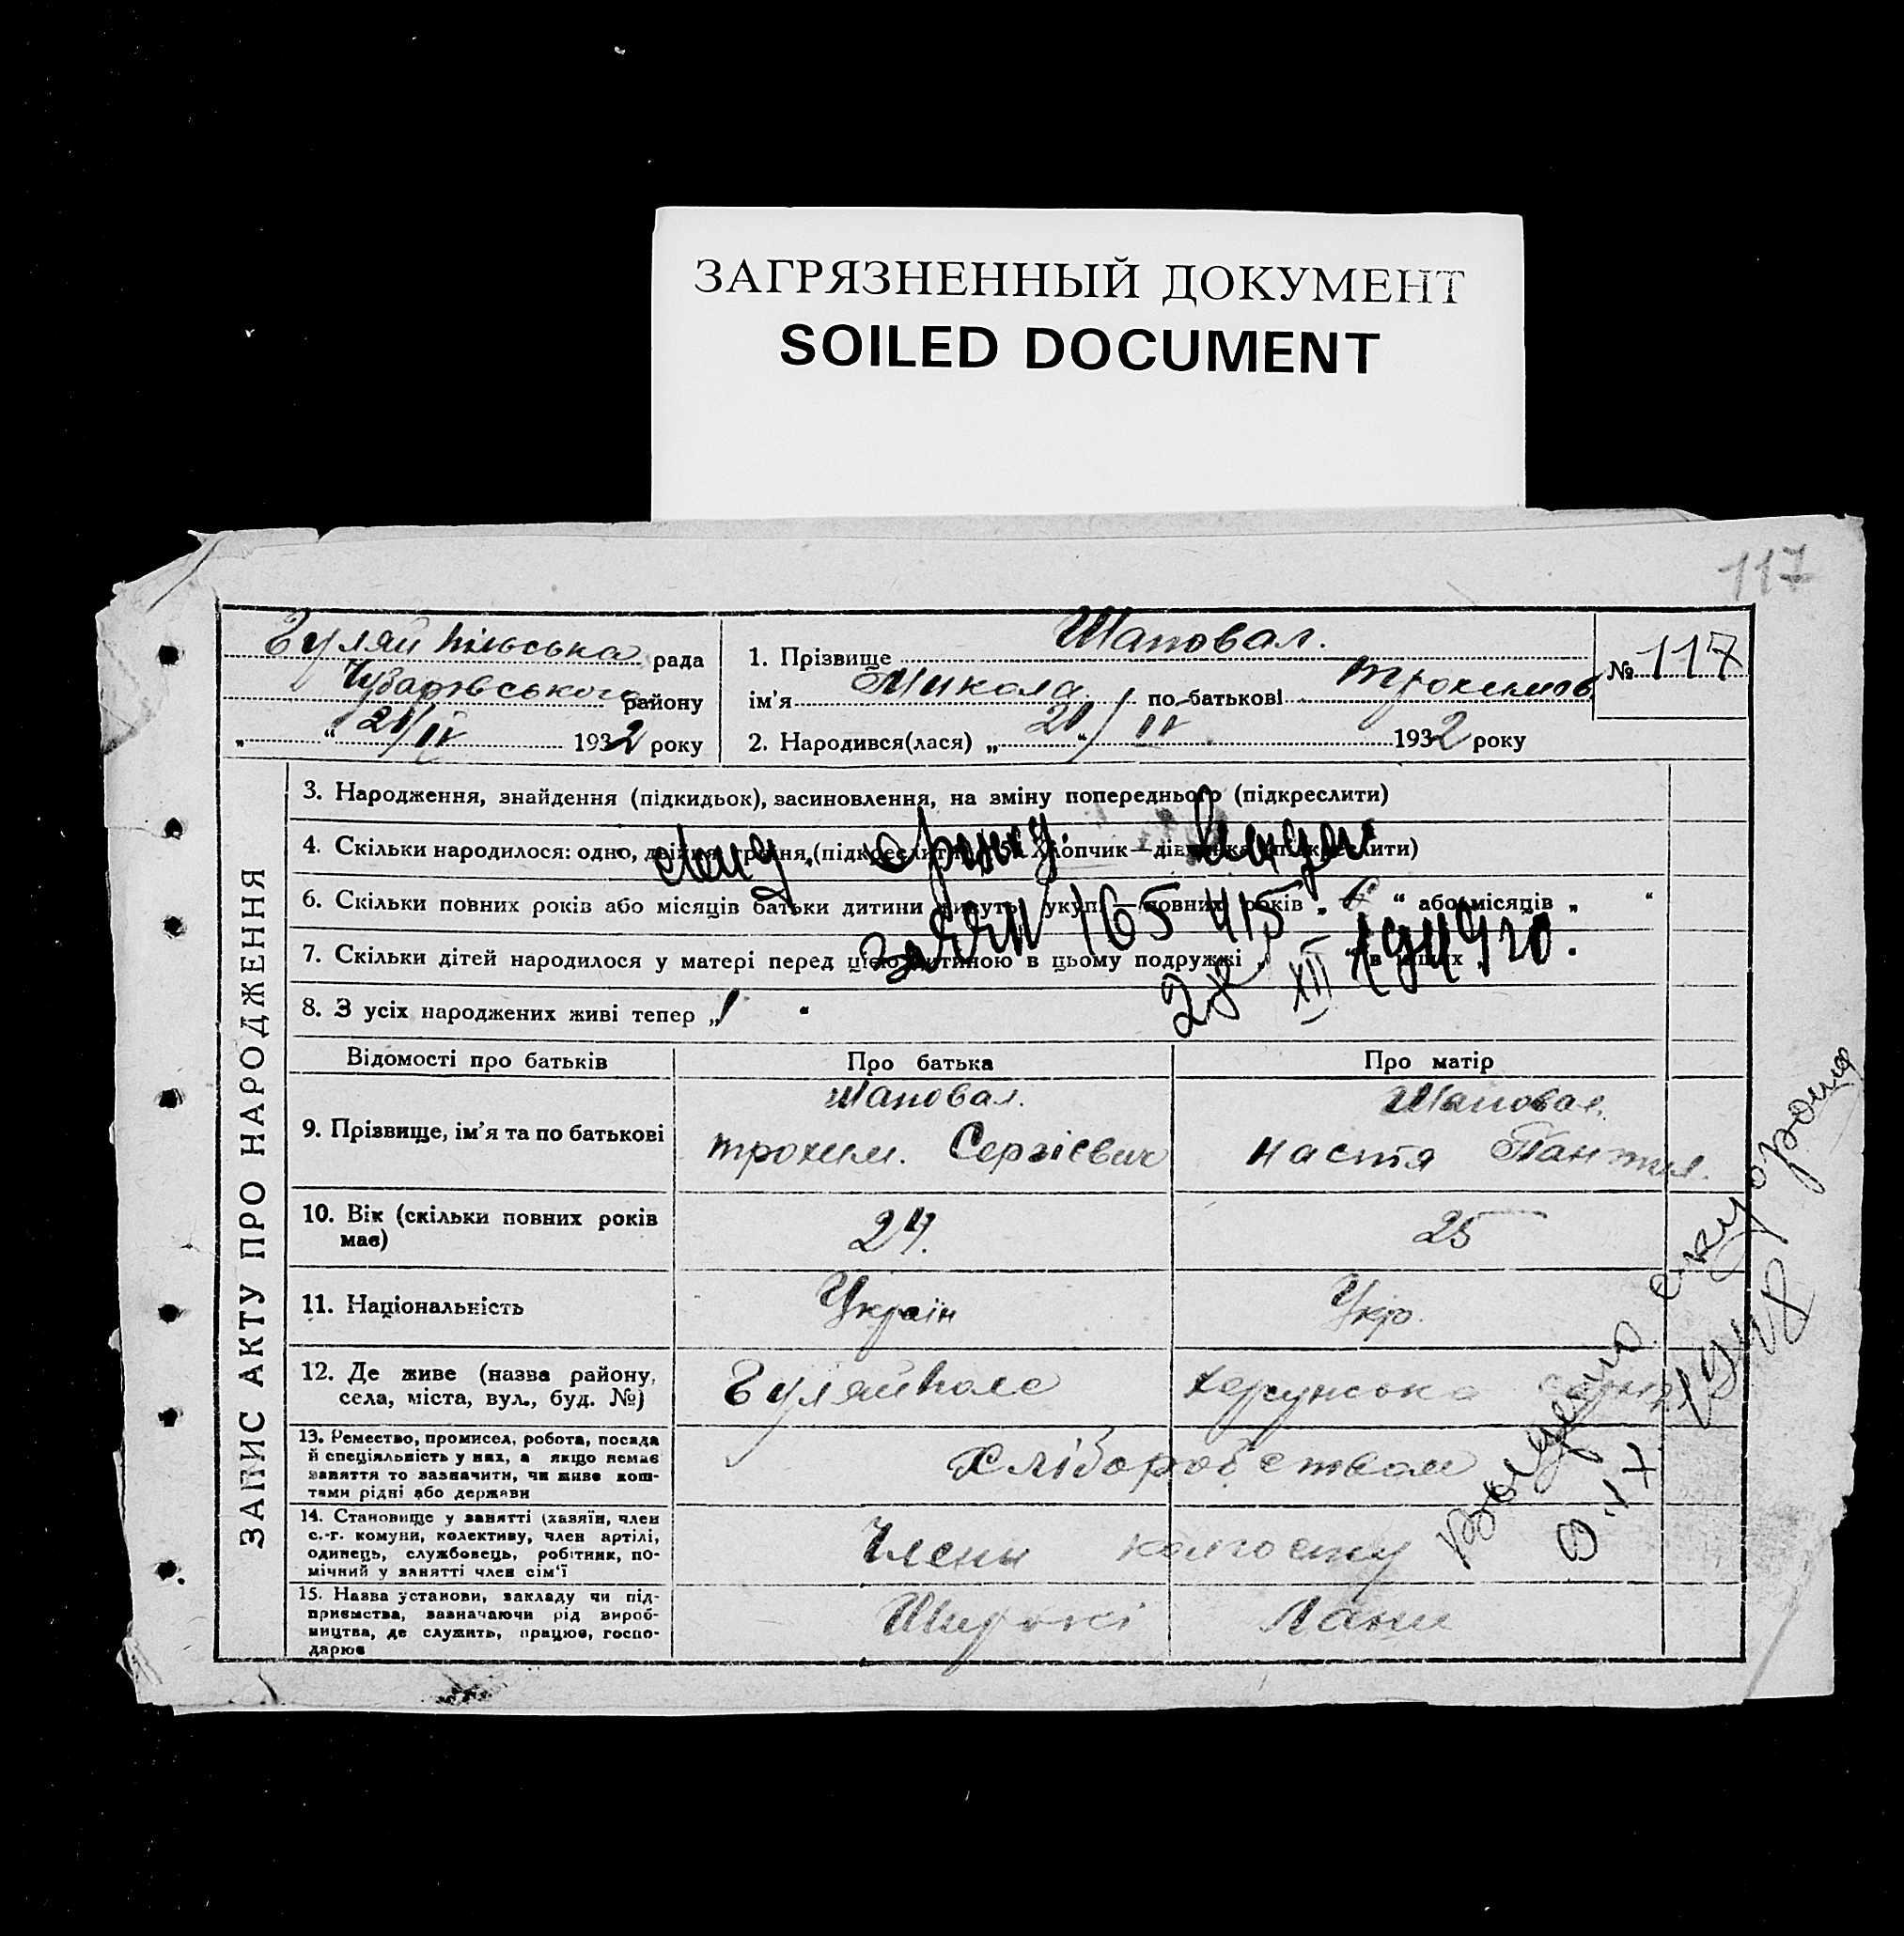 ЗАГРЯЗНЕННЫЙ ДОКУМЕНТ
SOILED DOCUMENT
117
Гуляйпільська рада
Чубарівського району
„ “ 21/IV 1932 року
1. Прізвище Шаповал.
ім'я Микола по батькові Трохимов
2. Народився(лася) „ 21/ “ IV 1932 року
№ 117
ЗАПИС АКТУ ПРО НАРОДЖЕННЯ
3. Народження, знайдення (підкидьок), засиновлення, на зміну попереднього (підкреслити)
4. Скільки народилося: одно, двійня, трійня, (підкреслити) 5. Хлопчик—дівчинка (підкреслити)
6. Скільки повних років або місяців батьки дитини живуть укупі—повних років „ “ або місяців „ “
7. Скільки дітей народилося у матері перед цією дитиною в цьому подружжі „ “ в інших „
165415
28 XII 1949 го.
8. З усіх народжених живі тепер „1 “
Відомості про батьків Про батька Про матір
9. Прізвище, ім'я та по батькові
Шаповал. Шаповал.
Трохим. Сергієвич Настя Пантил.
10. Вік (скільки повних років має) 24. 25
11. Національність Україн Укр.
12. Де живе (назва району, села, міста, вул., буд. №) Гуляйполе
13. Ремество, промисел, робота, посада й спеціяльність у них, а якщо немає заняття то зазначити, чи живе коштами рідні або держави
Хліборобством
14. Становище у занятті (хазяїн, член с.-г. комуни, колективу, член артілі, одинець, службовець, робітник, помічний у занятті член сім'ї
Члени колгоспу
15. Назва установи, закладу чи підприємства, зазначаючи рід виробництва, де служить, працює, господарює
Широкі Лани
1948